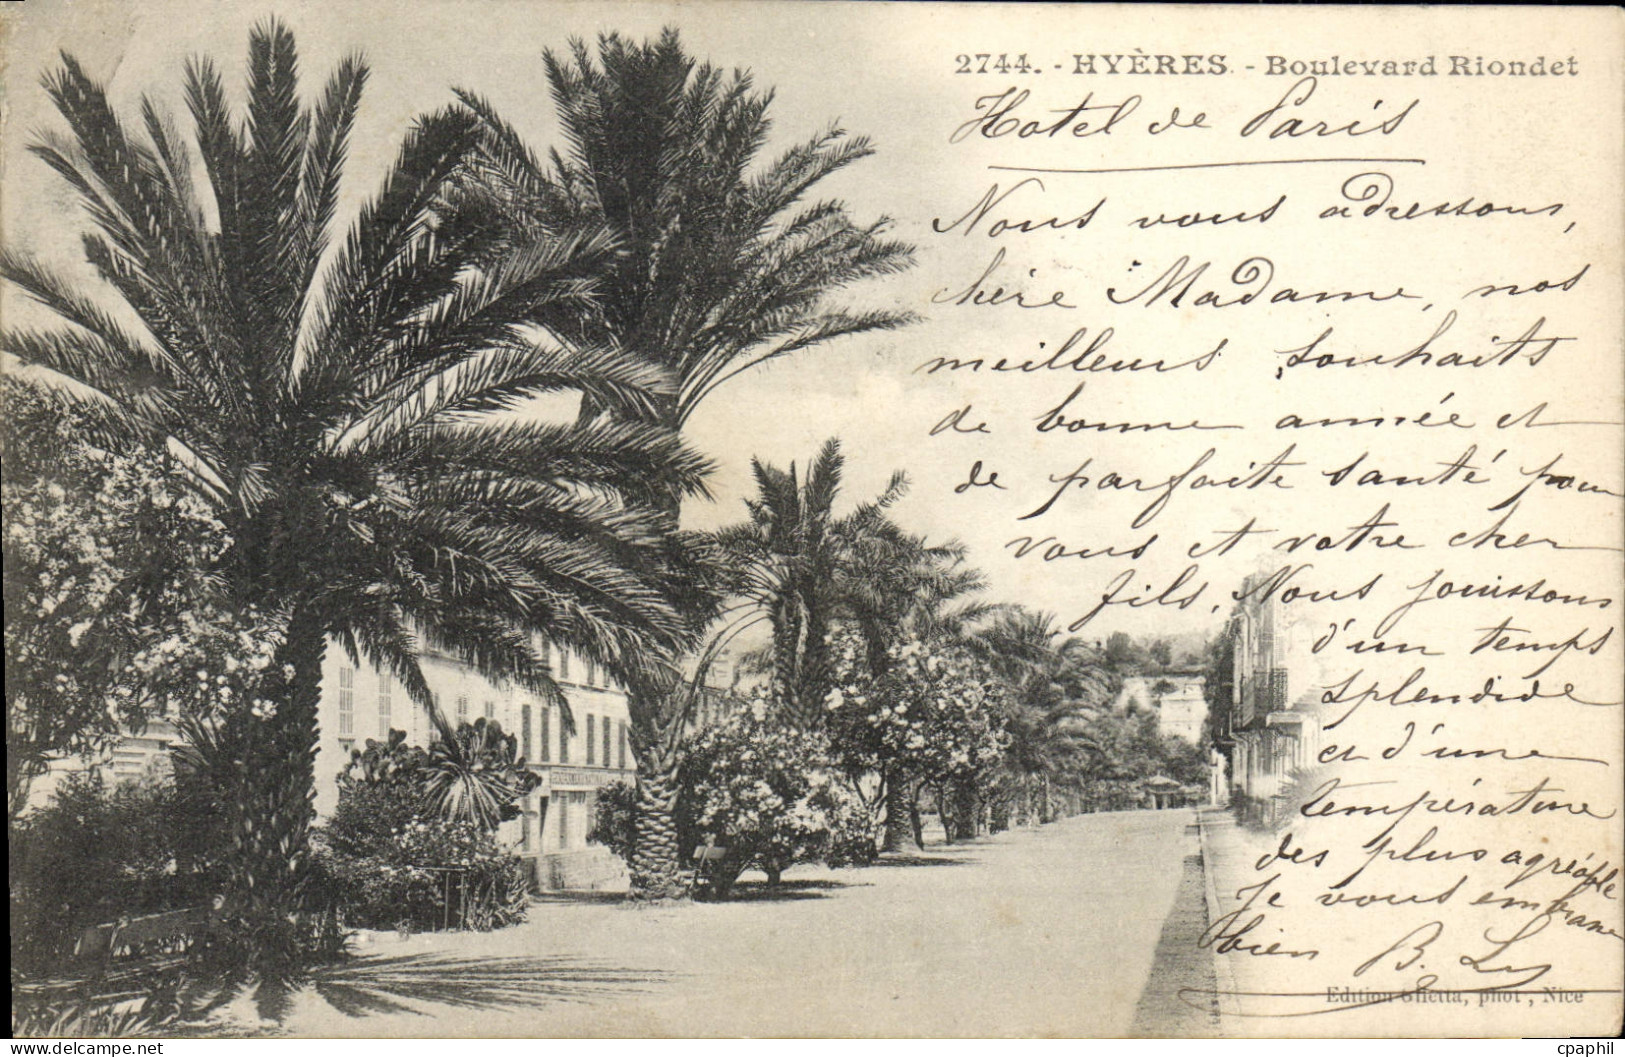 2744. - HYÈRES. - Boulevard Riondet
Hotel de Paris
Nous vous adressons,
chère Madame, nos
meilleurs souhaits
de bonne année et
de parfaite santé pour
vous et votre cher
fils. Nous jouissons
d'un temps
splendide
et d'une
température
des plus agréable
Je vous embrasse
bien B.
Edition Giletta, phot, Nice
www.delcampe.net
cpaphil